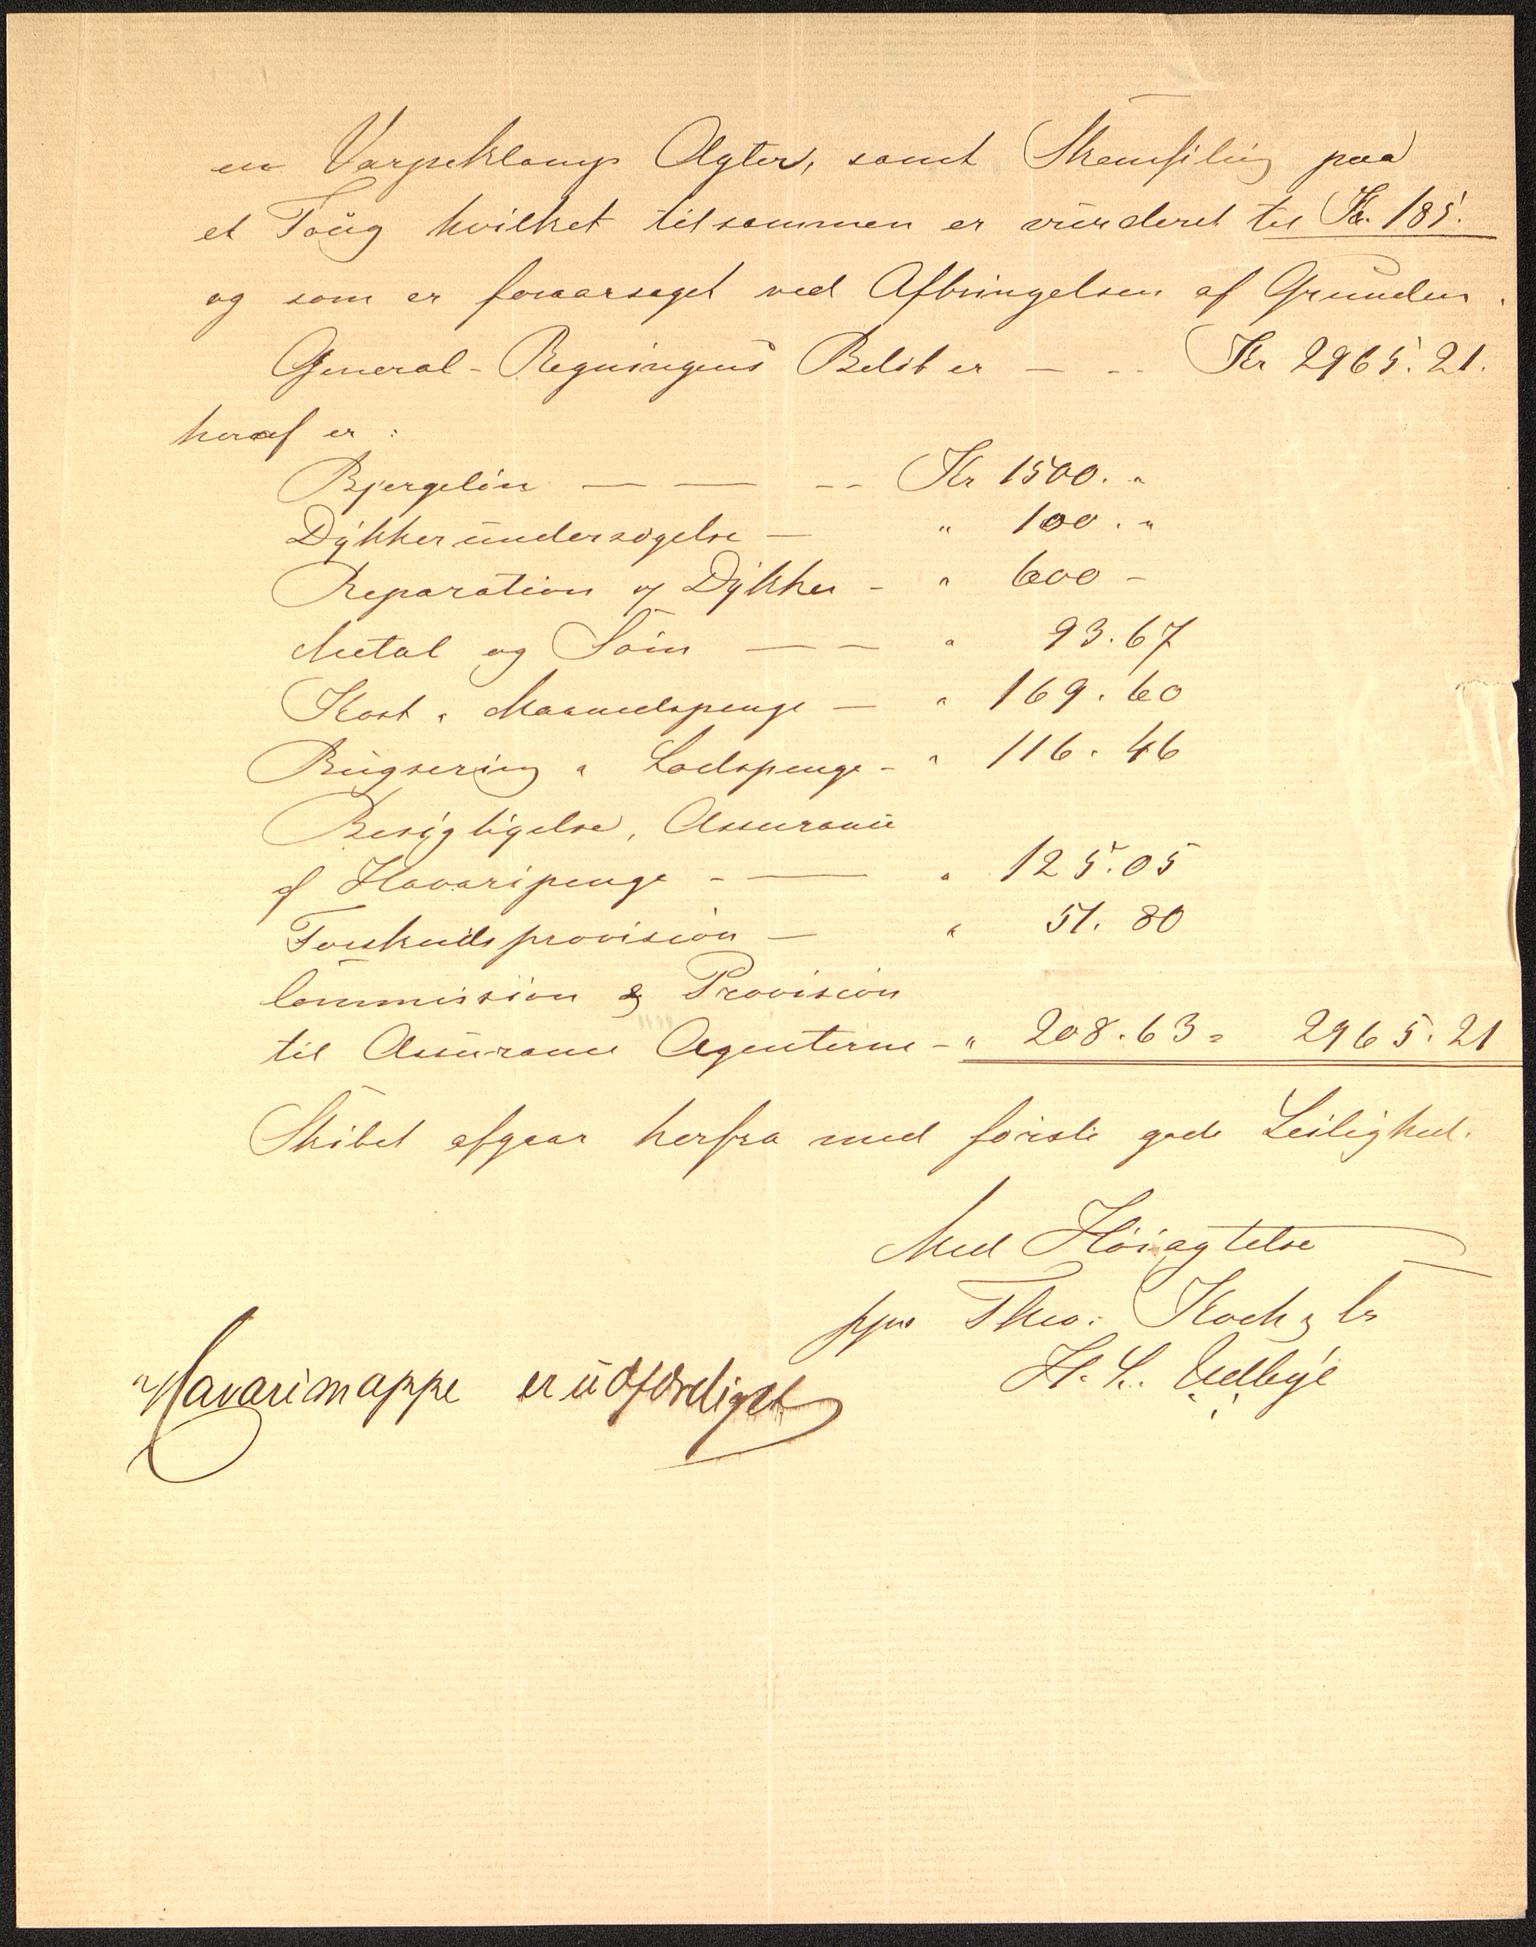 en Varpeklamp Agter, samt Skamfiling paa
et Toug hvilket tilsammen er vurderet til Kr. 185.
og som er foraarsaget ved Afbringelsen af Grunden.
General-Regningens Beløb er — - - Kr 2965.21.
heraf er :
Bjergeløn — — - - Kr 1500. "
Dykkerundersøgelse — " 100. "
Reparation og Dykker - " 600 -
Metal og Søm — — " 93.67
Kost " Maanedspenge — " 169.60
Bugsering " Lodspenge - " 116.46
Besigtigelse, Assurance
af Havaripenge - — " 125.05
Forskudsprovision — " 51.80
Commission & Provision
til Assurance Agenterne - " 208.63 = 2965.21
Skibet afgaar herfra med første gode Leilighed.
Med Høiagtelse
ppa Theo. Koch & Co
H. L. Udbye
Havarimappe er udfærdiget